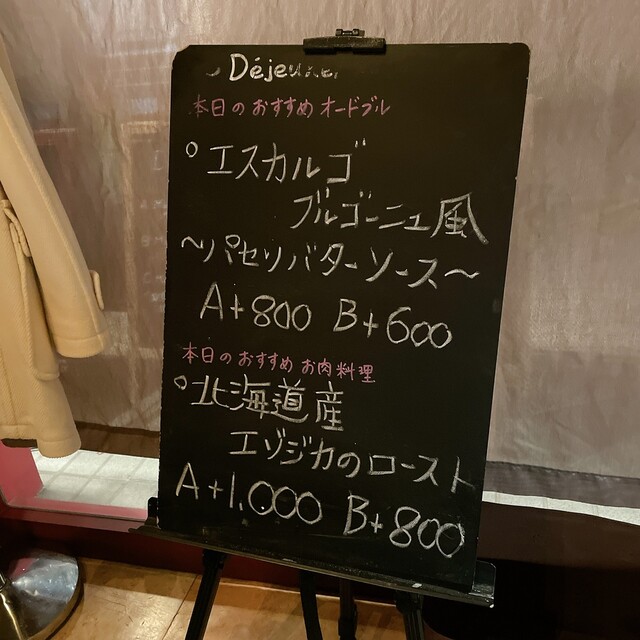 Déjeuner
本日のおすすめオードブル
○エスカルゴ
ブルゴーニュ風
〜パセリバターソース〜
A+800 B+600
本日のおすすめお肉料理
○北海道産
エゾジカのロースト
A+1,000 B+800